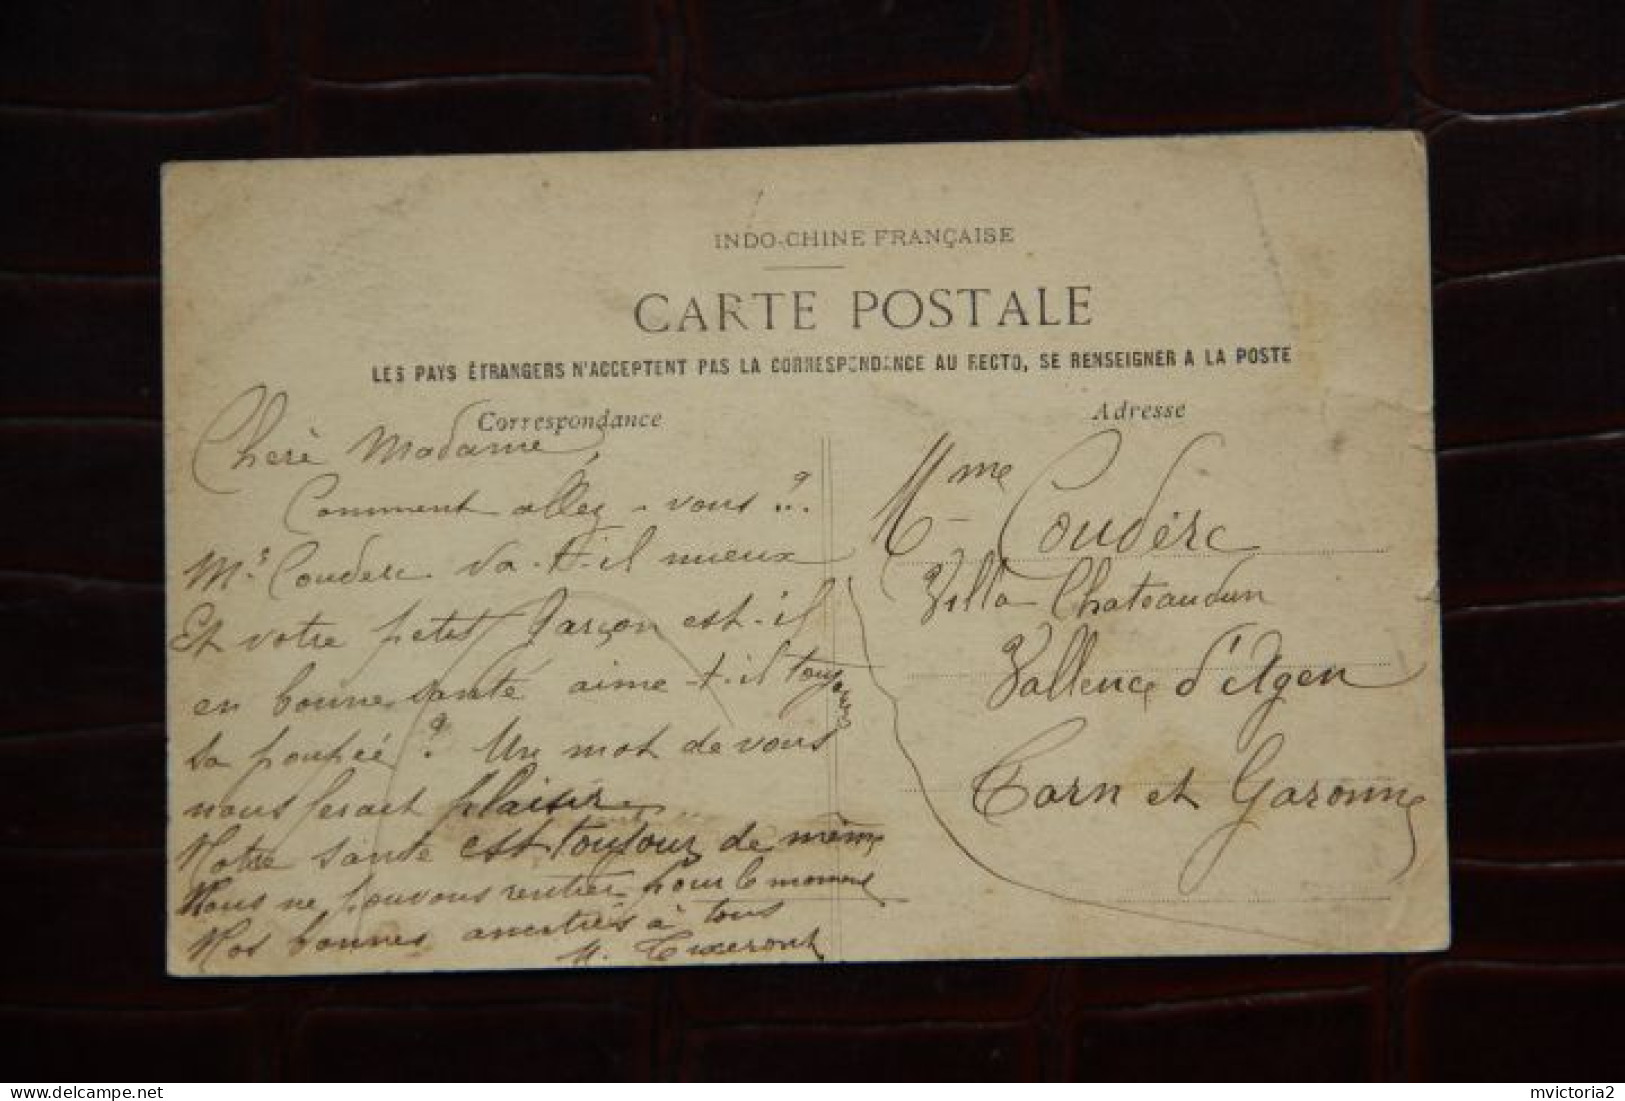 INDO-CHINE FRANÇAISE
CARTE POSTALE
LES PAYS ÉTRANGERS N'ACCEPTENT PAS LA CORRESPONDENCE AU RECTO, SE RENSEIGNER A LA POSTE
Correspondance
Adresse
Cherè Madame,
Comment allez-vous?
Mr Couderc va-t-il mieux
Et votre petit Garçon est-il
en bonne santé aime-t-il toujours
sa poupée? Un mot de vous
nous ferait plaisir
Notre santé est toujour de même
Nous ne pouvons rentrer pour le moment
Nos bonnes amitiés à tous
Mme Coudèrc
Villa Chateaudun
Vallence d'Agen
Tarn et Garonne
mvictoria2